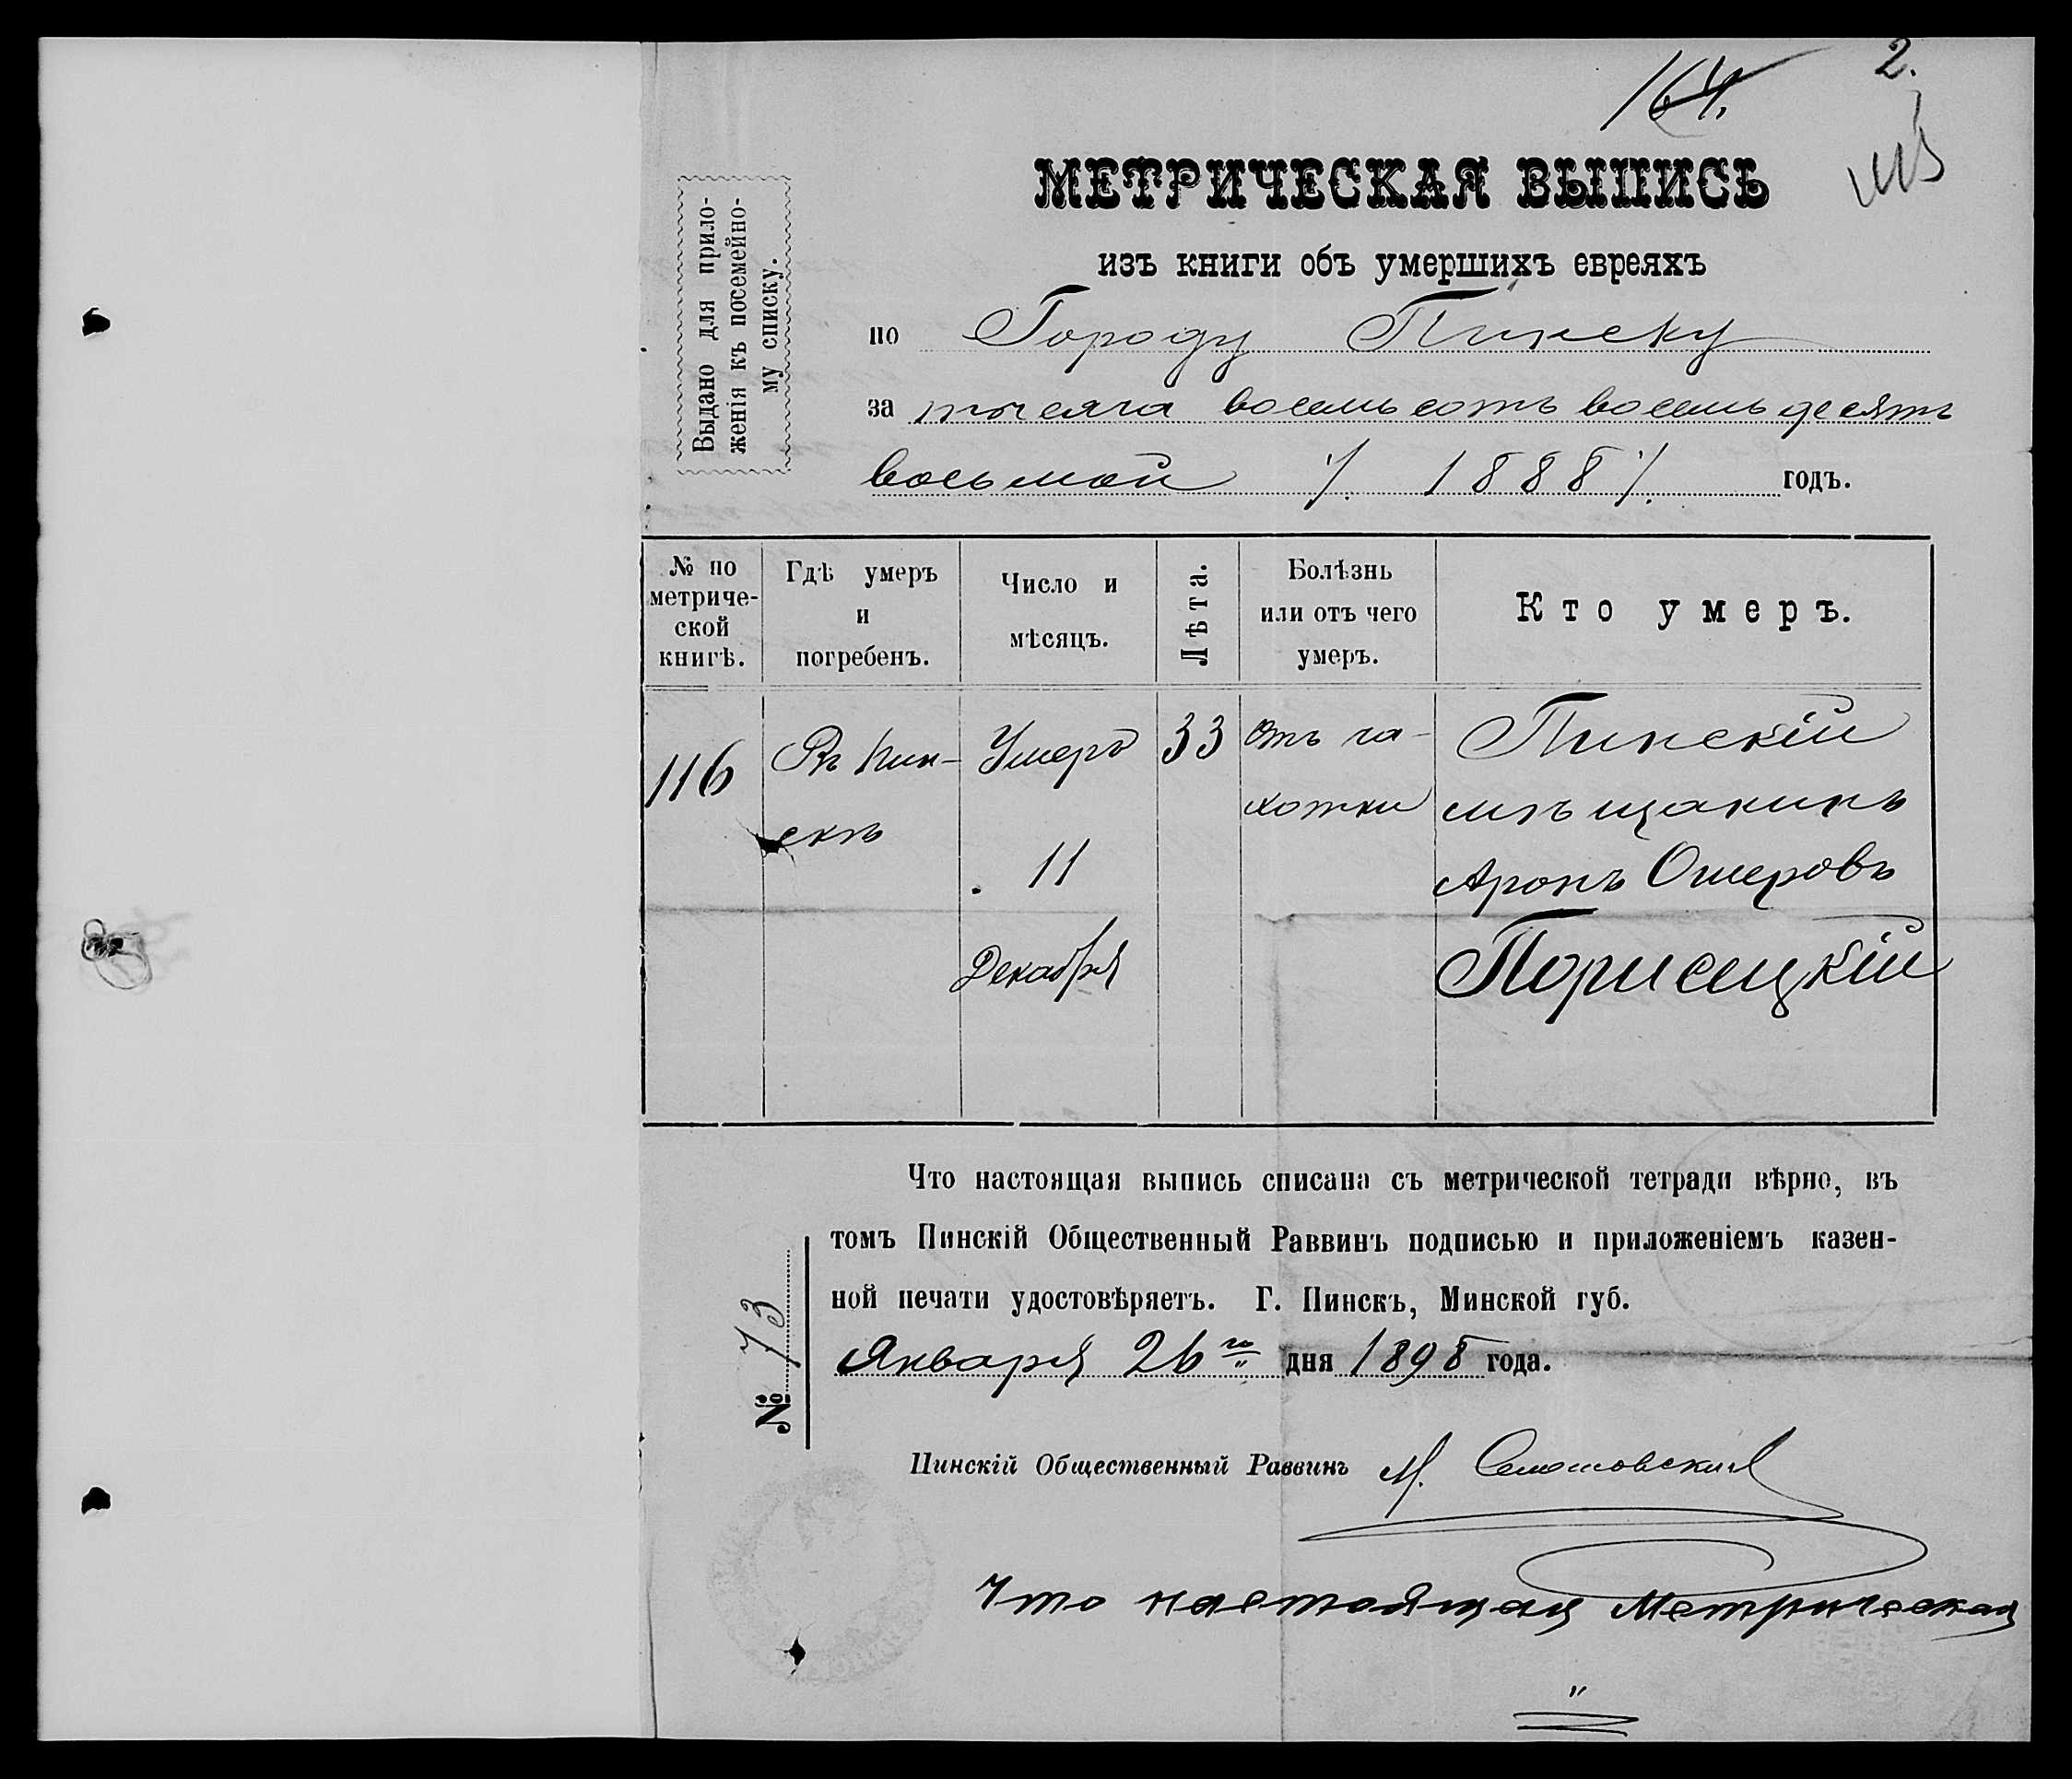 164.
2.
Выдано для прило-
женія къ посемейно-
му списку.
МЕТРИЧЕСКАЯ ВЫПИСЬ
изъ книги объ умершихъ евреяхъ
по Городу Пинску
за тысяча восемьсотъ восемьдесятъ
восьмой ./. 1888 ./. годъ.
№ по
метриче-
ской
книгѣ.
Гдѣ умеръ
и
погребенъ.
Число и
мѣсяцъ.
Лѣта.
Болѣзнь
или отъ чего
умеръ.
Кто умеръ.
116
Въ Пин-
скѣ
Умеръ
11
Декабря
33
Отъ ча-
хотки
Пинскій
мѣщанинъ
Аронъ Ошеровъ
Порисецкій
Что настоящая выпись списана съ метрической тетради вѣрно, въ
томъ Пинскій Общественный Раввинъ подписью и приложеніемъ казен-
ной печати удостовѣряетъ. Г. Пинскъ, Минской губ.
Января 26го дня 1898 года.
№ 73
Пинскій Общественный Раввинъ М.
Что настоящая Метрическая